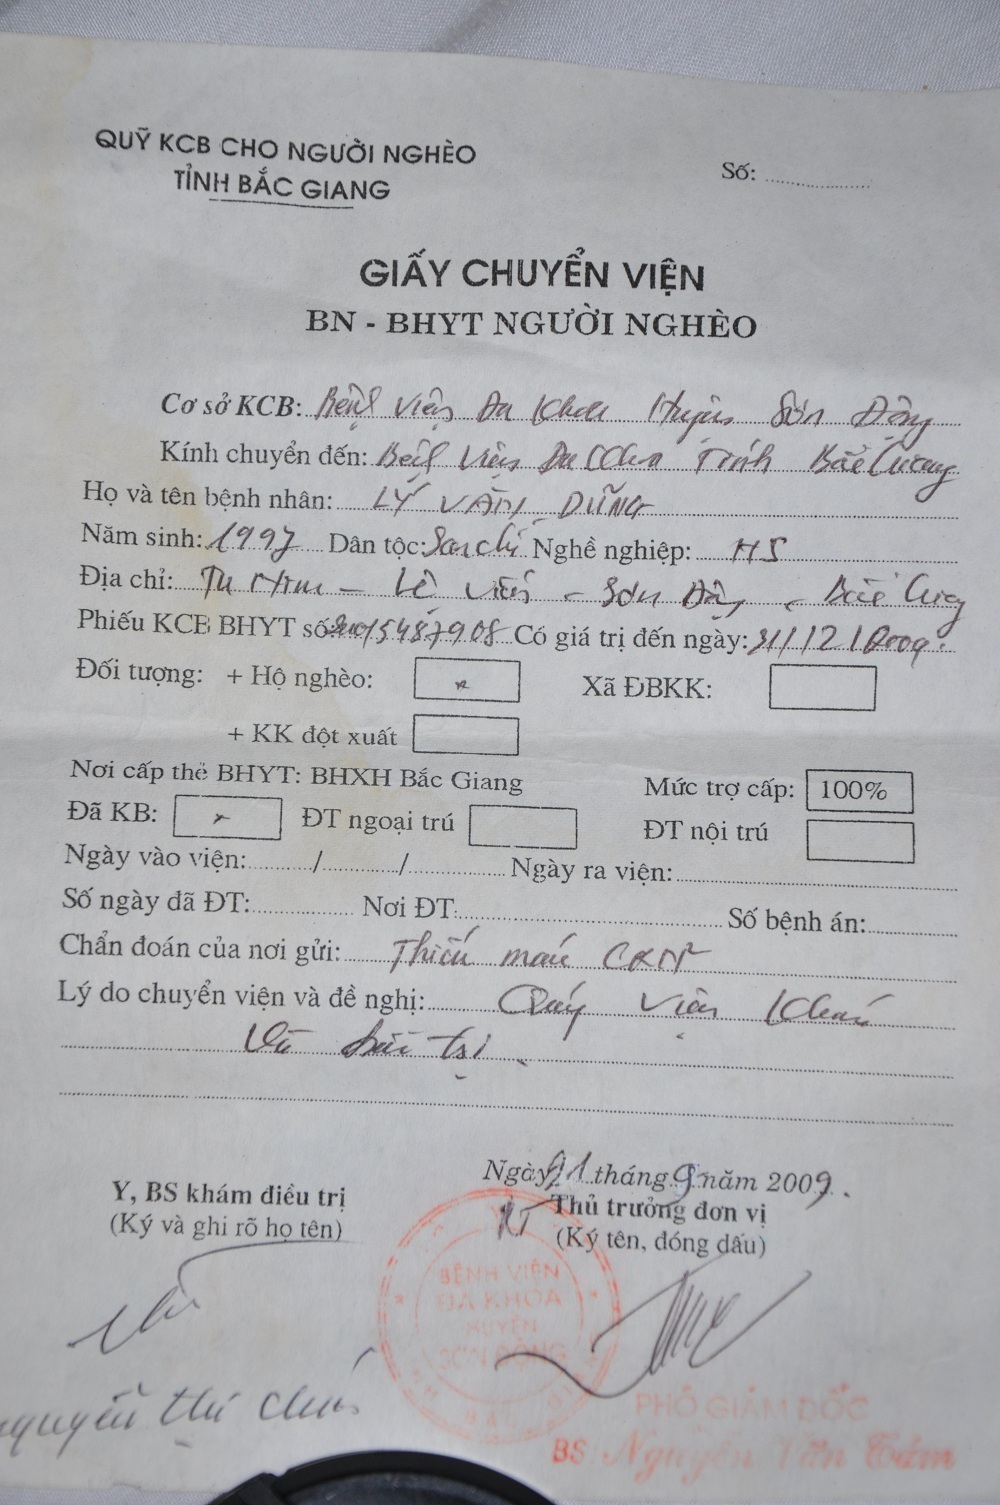 QUỸ KCB CHO NGƯỜI NGHÈO
TỈNH BẮC GIANG
Số: ....................
GIẤY CHUYỂN VIỆN
BN - BHYT NGƯỜI NGHÈO
Cơ sở KCB: Bệnh viện Đa Khoa Huyện Sơn Động
Kính chuyển đến: Bệnh viện Đa Khoa Tỉnh Bắc Giang
Họ và tên bệnh nhân: LÝ VĂN DŨNG
Năm sinh: 1997 Dân tộc: Sán chí Nghề nghiệp: HS
Địa chỉ: Lệ Viễn - Sơn Động - Bắc Giang
Phiếu KCB BHYT số Có giá trị đến ngày: 31/12/2009.
Đối tượng: + Hộ nghèo: x Xã ĐBKK:
+ KK đột xuất
Nơi cấp thẻ BHYT: BHXH Bắc Giang Mức trợ cấp: 100%
Đã KB: x ĐT ngoại trú ĐT nội trú
Ngày vào viện: ......../......../........ Ngày ra viện: ........
Số ngày đã ĐT: ........ Nơi ĐT: ........ Số bệnh án: ........
Chẩn đoán của nơi gửi: Thiếu máu CRNN
Lý do chuyển viện và đề nghị: Quý viện Khám
Và điều trị.
Ngày 21 tháng 9 năm 2009.
Y, BS khám điều trị
(Ký và ghi rõ họ tên)
KT Thủ trưởng đơn vị
(Ký tên, đóng dấu)
BỆNH VIỆN
ĐA KHOA
HUYỆN
SƠN ĐỘNG
Nguyễn Thị
PHÓ GIÁM ĐỐC
BS. Nguyễn Văn Tâm